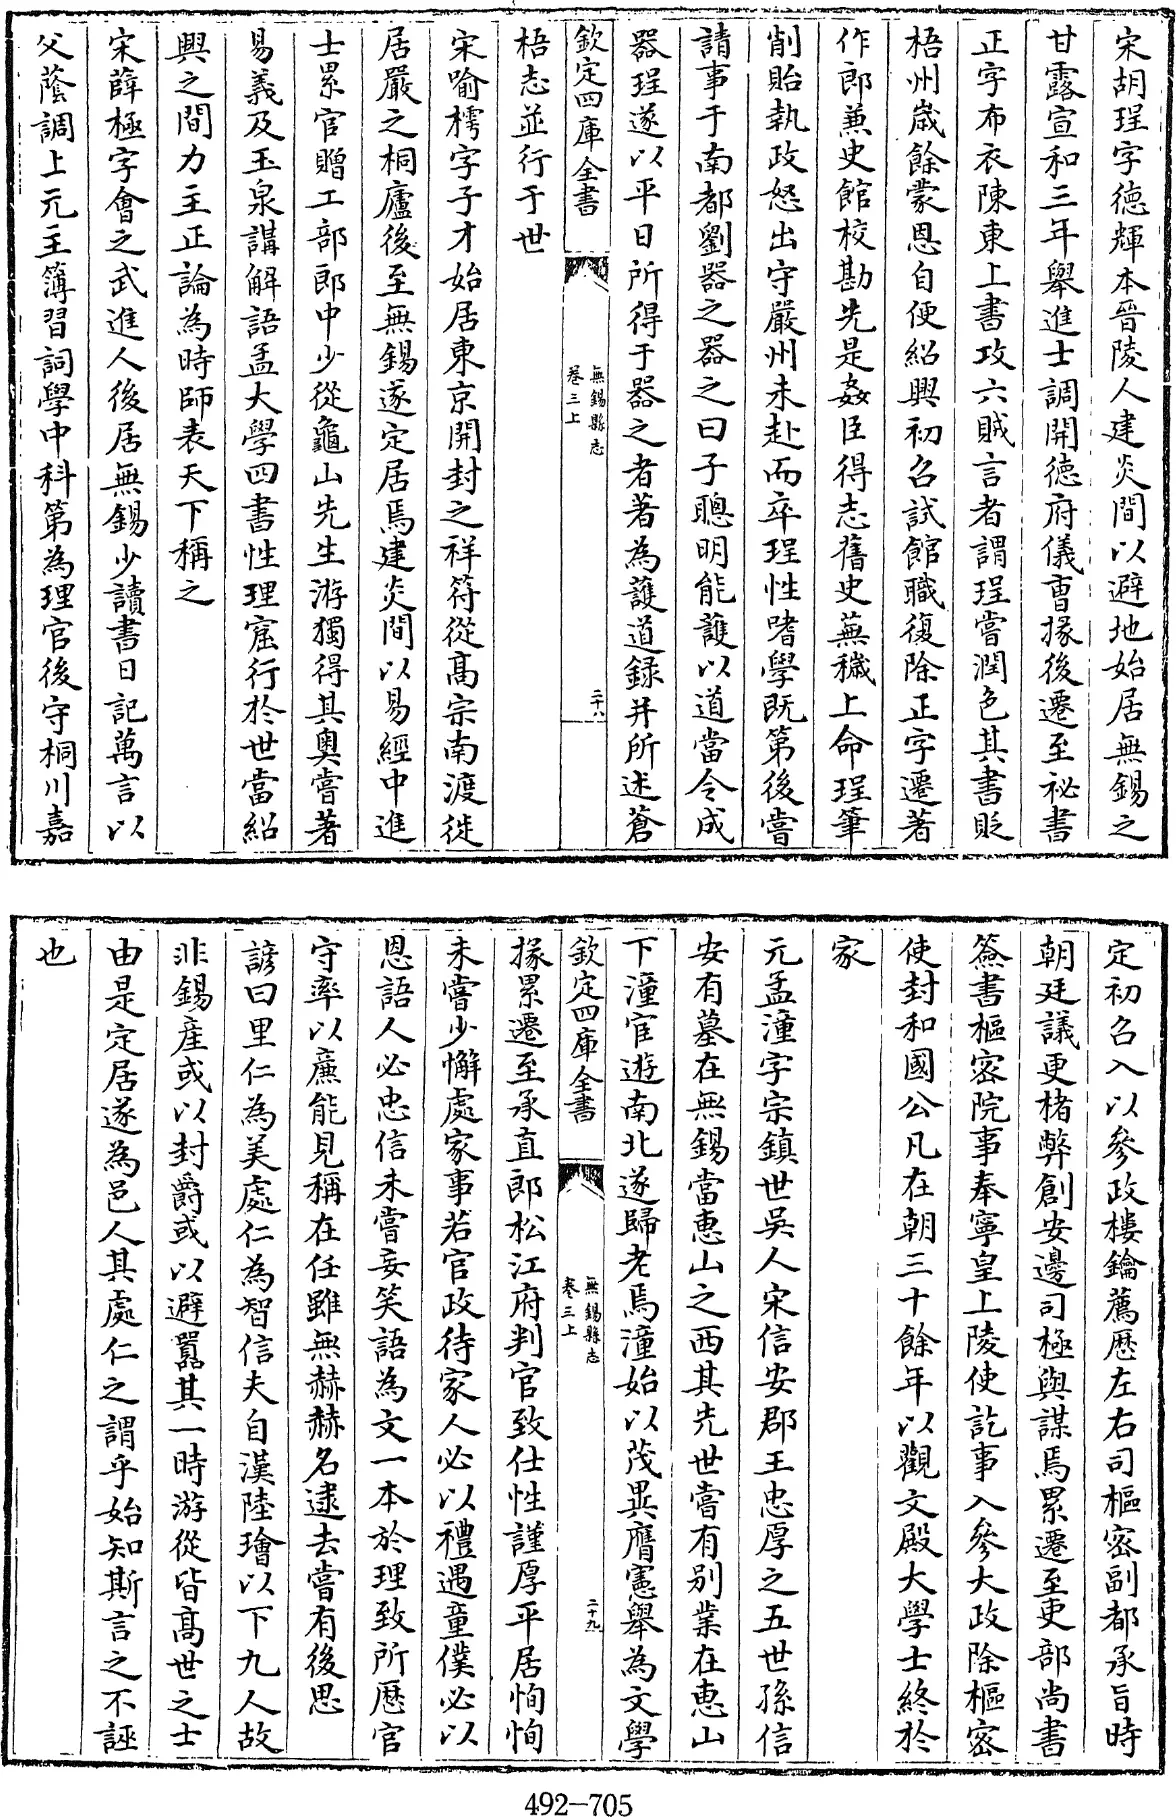 宋胡珵字德輝本晉陵人建炎間以避地始居無錫之
甘露宣和三年舉進士調開德府儀曹掾後遷至祕書
正字布衣陳東上書攻六賊言者謂珵嘗潤色其書貶
梧州嵗餘蒙恩自便紹興初召試館職復除正字遷著
作郎兼史館校勘先是姦臣得志舊史蕪穢上命珵筆
削貽執政怒出守嚴州未赴而卒珵性嗜學既第後嘗
請事于南都劉器之器之曰子聰明能護以道當令成
器珵遂以平日所得于器之者著為護道録并所述蒼
欽定四庫全書
無錫縣志
卷三上
二十八
梧志並行于世
宋喻樗字子才始居東京開封之祥符從髙宗南渡徙
居嚴之桐廬後至無錫遂定居焉建炎間以易經中進
士累官贈工部郎中少從龜山先生游獨得其奥嘗著
易義及玉泉講解語孟大學四書性理窟行於世當紹
興之間力主正論為時師表天下稱之
宋薛極字會之武進人後居無錫少讀書日記萬言以
父蔭調上元主簿習詞學中科第為理官後守桐川嘉
定初召入以參政樓鑰薦歴左右司樞宻副都承旨時
朝廷議更楮弊創安邊司極與謀焉累遷至吏部尚書
簽書樞宻院事奉寧皇上陵使訖事入參大政除樞宻
使封和國公凡在朝三十餘年以觀文殿大學士終於
家
元孟潼字宗鎮世吳人宋信安郡王忠厚之五世孫信
安有墓在無錫當惠山之西其先世嘗有别業在惠山
下潼宦遊南北遂歸老焉潼始以茂異膺憲舉為文學
欽定四庫全書
無錫縣志
卷三上
二十九
掾累遷至承直郎松江府判官致仕性謹厚平居恂恂
未嘗少懈處家事若官政待家人必以禮遇童僕必以
恩語人必忠信未嘗妄笑語為文一本於理致所歴官
守率以亷能見稱在任雖無赫赫名逮去嘗有後思
諺曰里仁為美處仁為智信夫自漢陸璯以下九人故
非錫産或以封爵或以避囂其一時游從皆髙世之士
由是定居遂為邑人其處仁之謂乎始知斯言之不誣
也
492-705